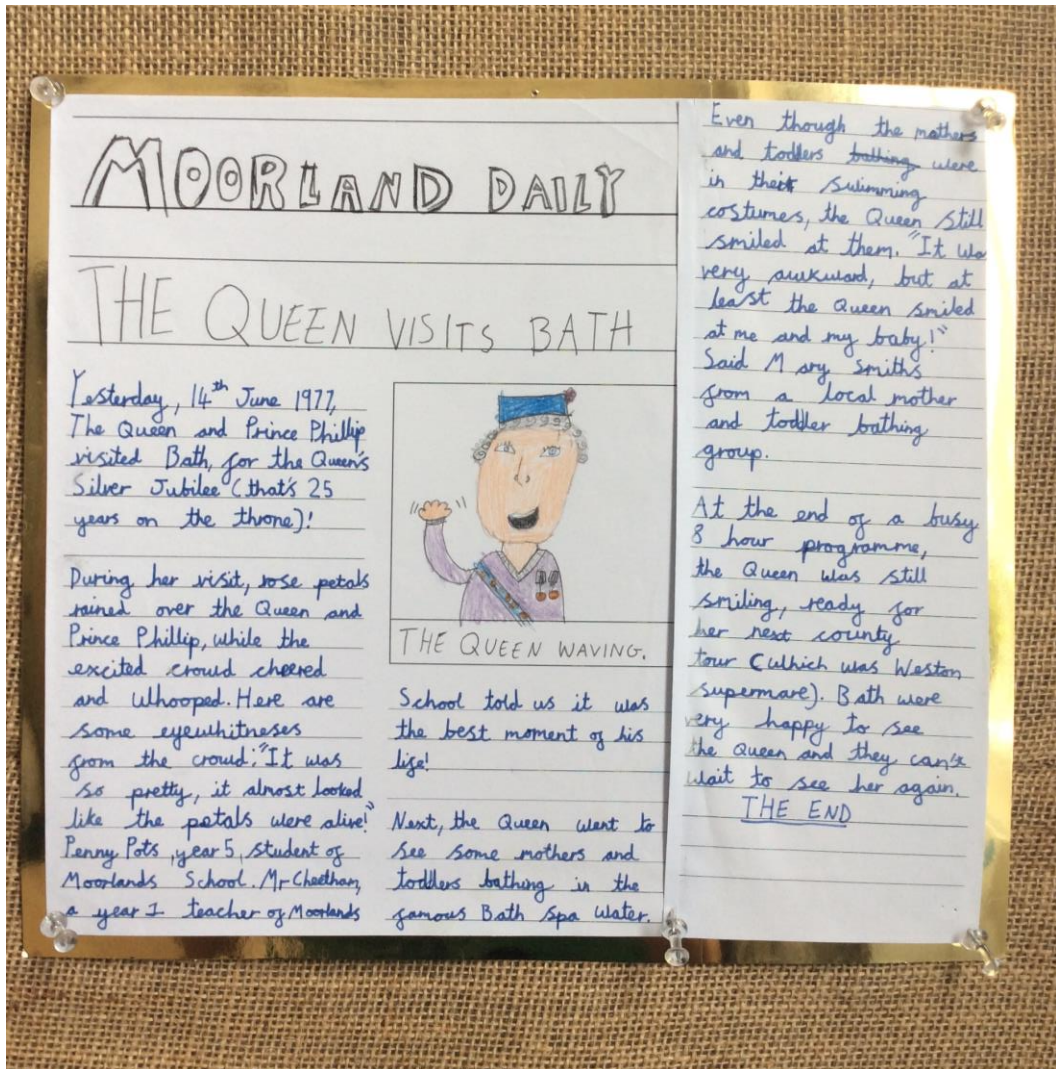 MOORLAND DAILY
THE QUEEN VISITS BATH
Yesterday, 14th June 1977,
The Queen and Prince Phillip
visited Bath, for the Queen's
Silver Jubilee (that's 25
years on the throne)!
During her visit, rose petals
rained over the Queen and
Prince Phillip, while the
excited crowd cheered
and whooped. Here are
some eyewhitneses
from the crowd: "It was
so pretty, it almost looked
like the petals were alive!"
Penny Pots, year 5, student of
Moorlands School. Mr Cheetham,
a year 1 teacher of Moorlands
THE QUEEN WAVING.
School told us it was
the best moment of his
life!
Next, the Queen went to
see some mothers and
toddlers bathing in the
famous Bath Spa Water.
Even though the mothers
and toddlers bathing were
in their swimming
costumes, the Queen still
smiled at them. "It was
very awkward, but at
least the Queen smiled
at me and my baby!"
Said Mary Smiths
from a local mother
and toddler bathing
group.
At the end of a busy
8 hour programme,
the Queen was still
smiling, ready for
her next county
tour (which was Weston
supermare). Bath were
very happy to see
the Queen and they can't
wait to see her again.
THE END